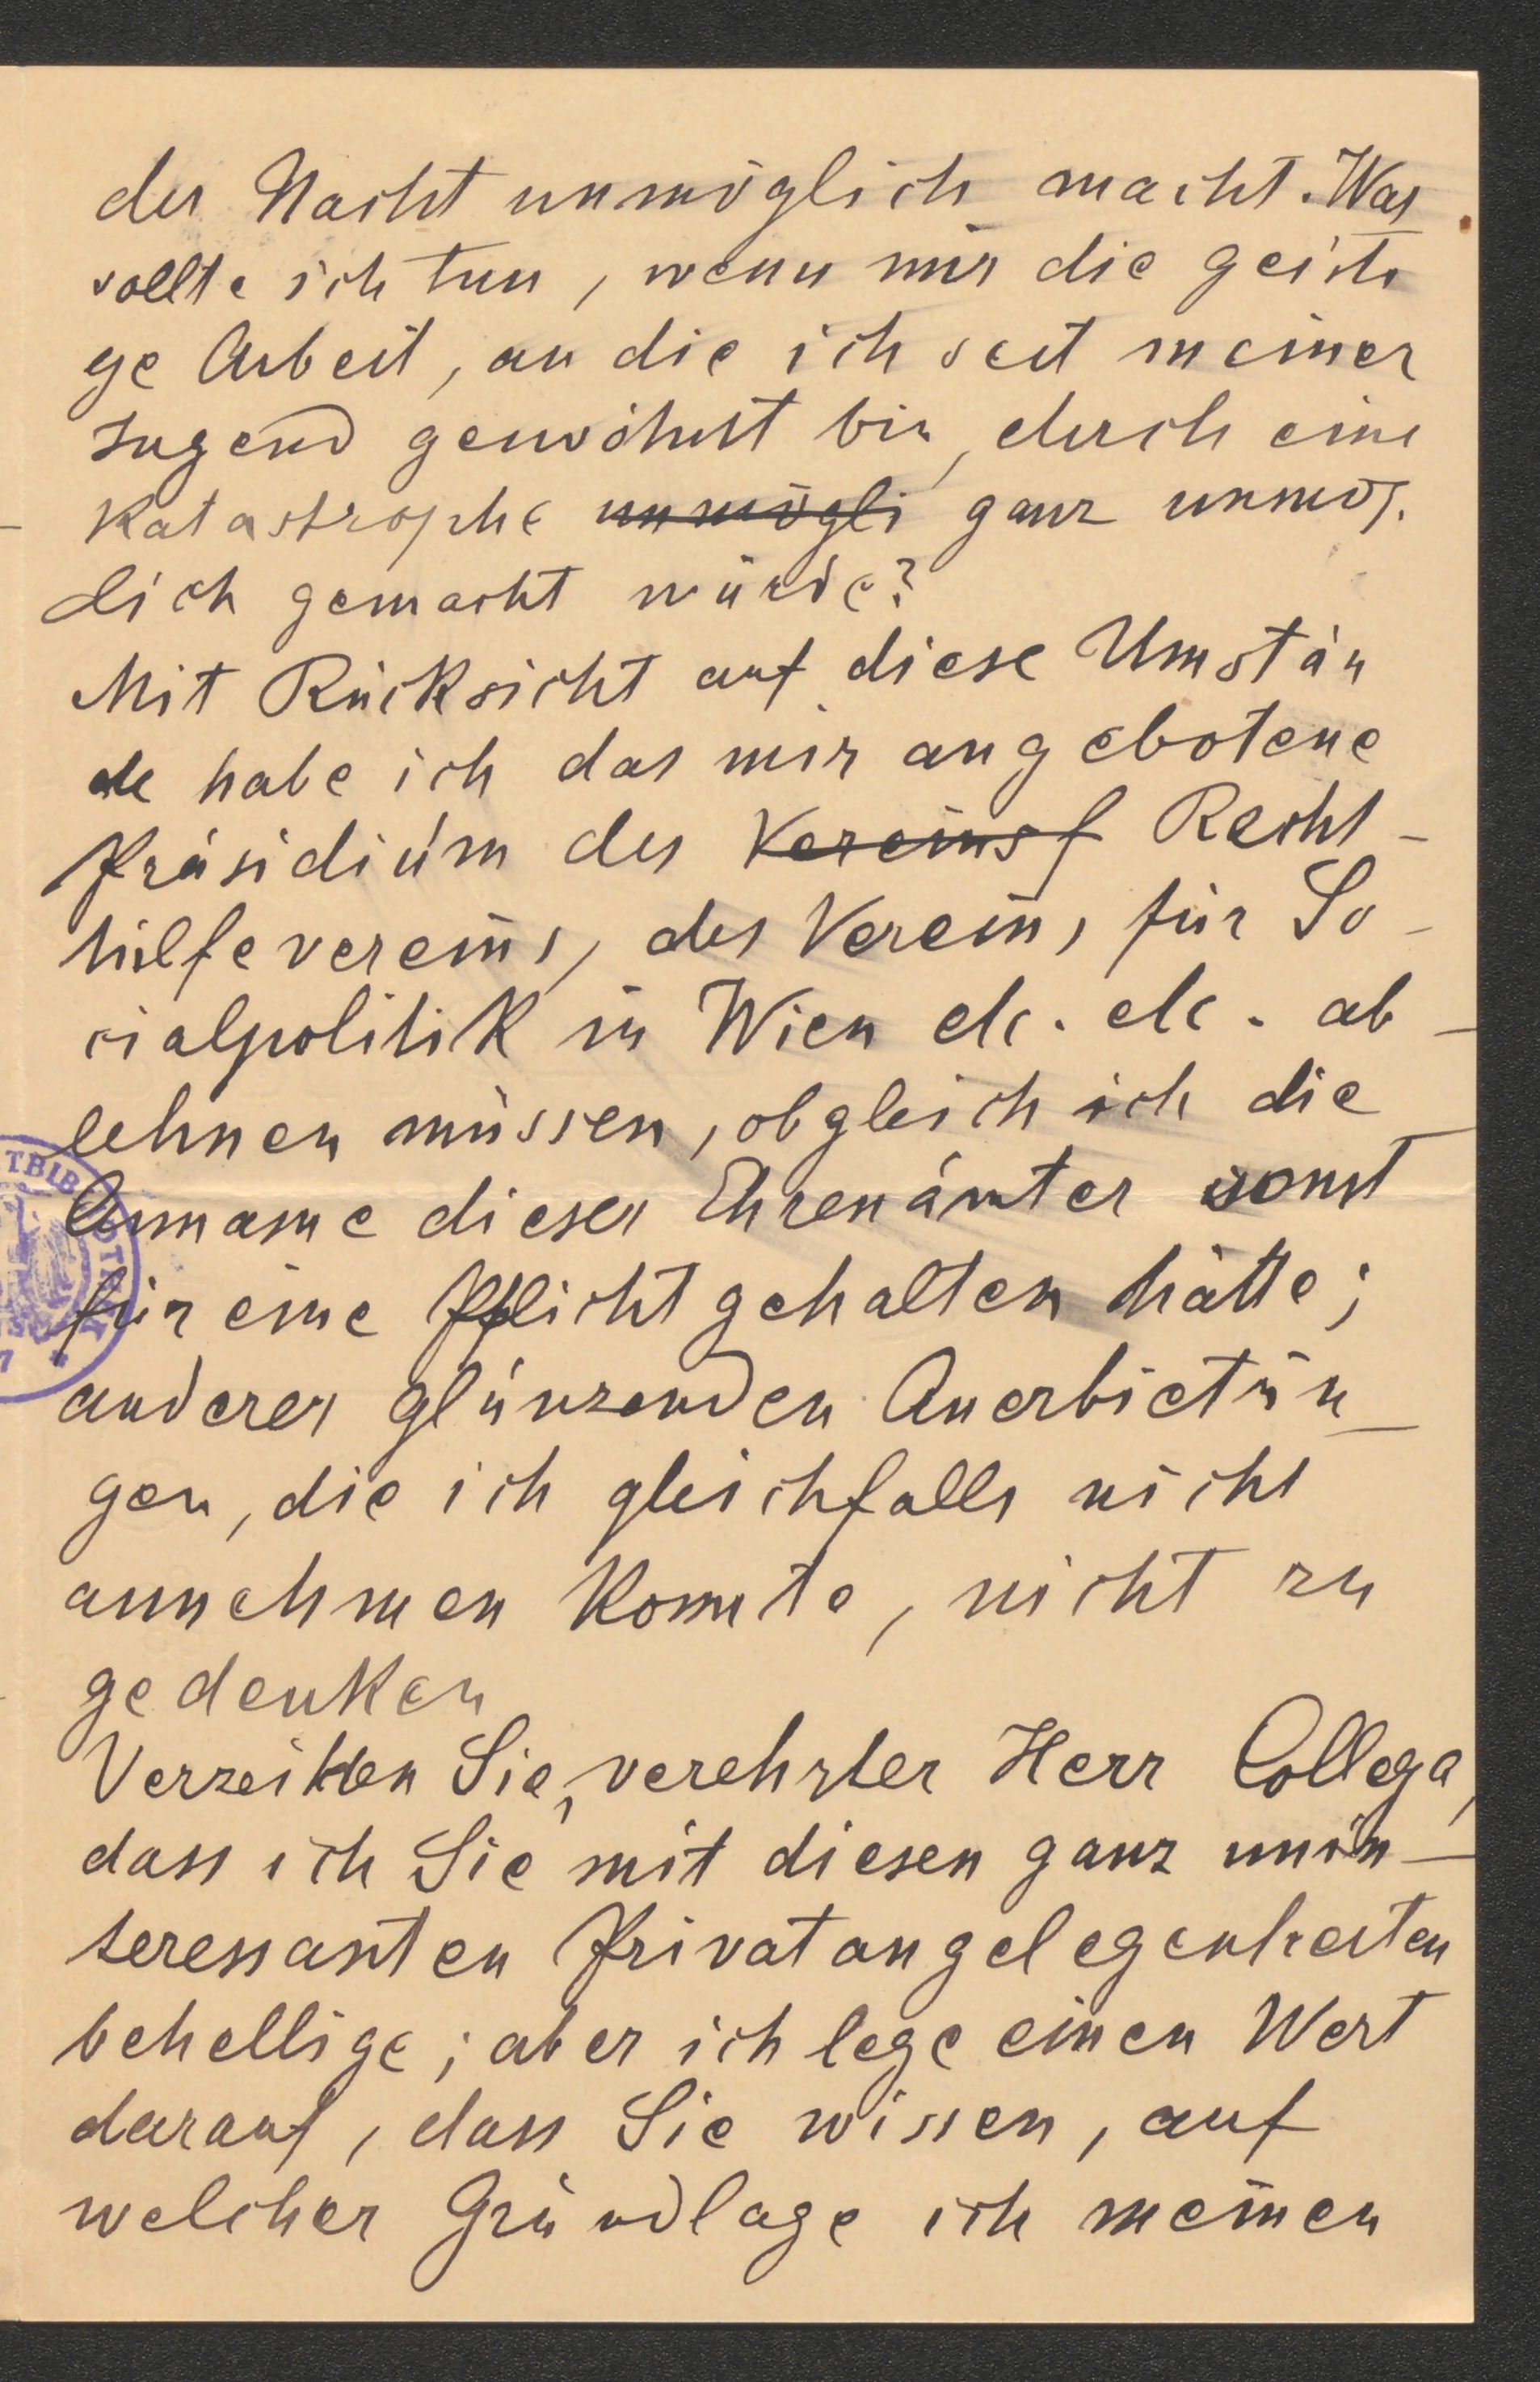 der Nacht unmöglich macht. Was
sollte ich tun, wenn mir die geisti
ge Arbeit, an die ich seit meiner
Jugend gewöhnt bin, durch eine
Katastrophe unmögli ganz unmög.
lich gemacht würde?
Mit Rücksicht auf diese Umstän
de habe ich das mir angebotene
Präsidium des Vereinsf Rechts-
hilfevereins, des Vereins für So-
cialpolitik in Wien etc. etc. ab-
lehnen müssen, obgleich ich die
Anname dieser Ehrenämter sonst
für eine Pflicht gehalten hätte;
anderer glänzenden Anerbietun-
gen, die ich gleichfalls nicht
annehmen konnte, nicht zu
gedenken
Verzeihen Sie, verehrter Herr Collega,
dass ich Sie mit diesen ganz unin-
teressanten Privatangelegenheiten
behellige; aber ich lege einen Wert
darauf, dass Sie wissen, auf
welcher Grundlage ich meinen